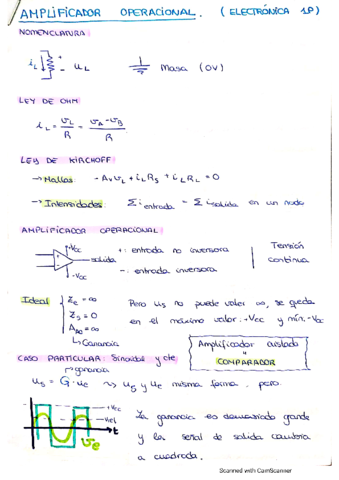 AMPLIFICADOR OPERACIONAL. (ELECTRÓNICA 1P)
NOMENCLATURA:
iL + - uL masa (0V)
LEY DE OHM
iL = vL/R = (vA - vB)/R
LEY DE KIRCHOFF
→ Mallas: - Av vL + iL RS + iL RL = 0
→ Intensidades: Σ i entrada = Σ i salida en un nudo
AMPLIFICADOR OPERACIONAL
+Vcc
salida
-Vcc
+: entrada no inversora
-: entrada inversora
Tensión
continua
Ideal
Ze = ∞
Zs = 0
AAO = ∞
↳ Ganancia
Pero us no puede valer ∞, se queda
en el máximo valor. +Vcc y mín. -Vcc
Amplificador aislado
=
COMPARADOR
CASO PARTICULAR: Sinoidal y cte
ganancia
us = G · ue ⇒ us y ue misma forma. pero.
+Vcc
t
ve
La ganancia es demasiado grande
y la señal de salida cambia
a cuadrada.
Scanned with CamScanner